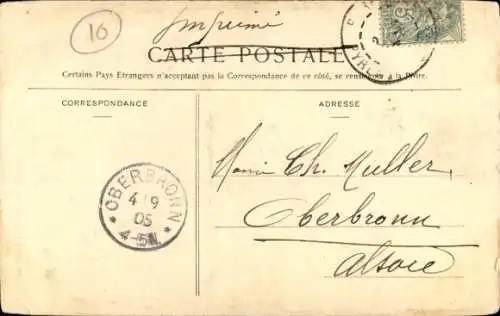 16
Imprimé
CARTE POSTALE
Certains Pays Etrangers n'acceptant pas la Correspondance de ce côté, se renseigner à la Poste.
CORRESPONDANCE
ADRESSE
Ch. Muller
Oberbronn
Alsace
OBERBRONN
4 9
05
4-5N.